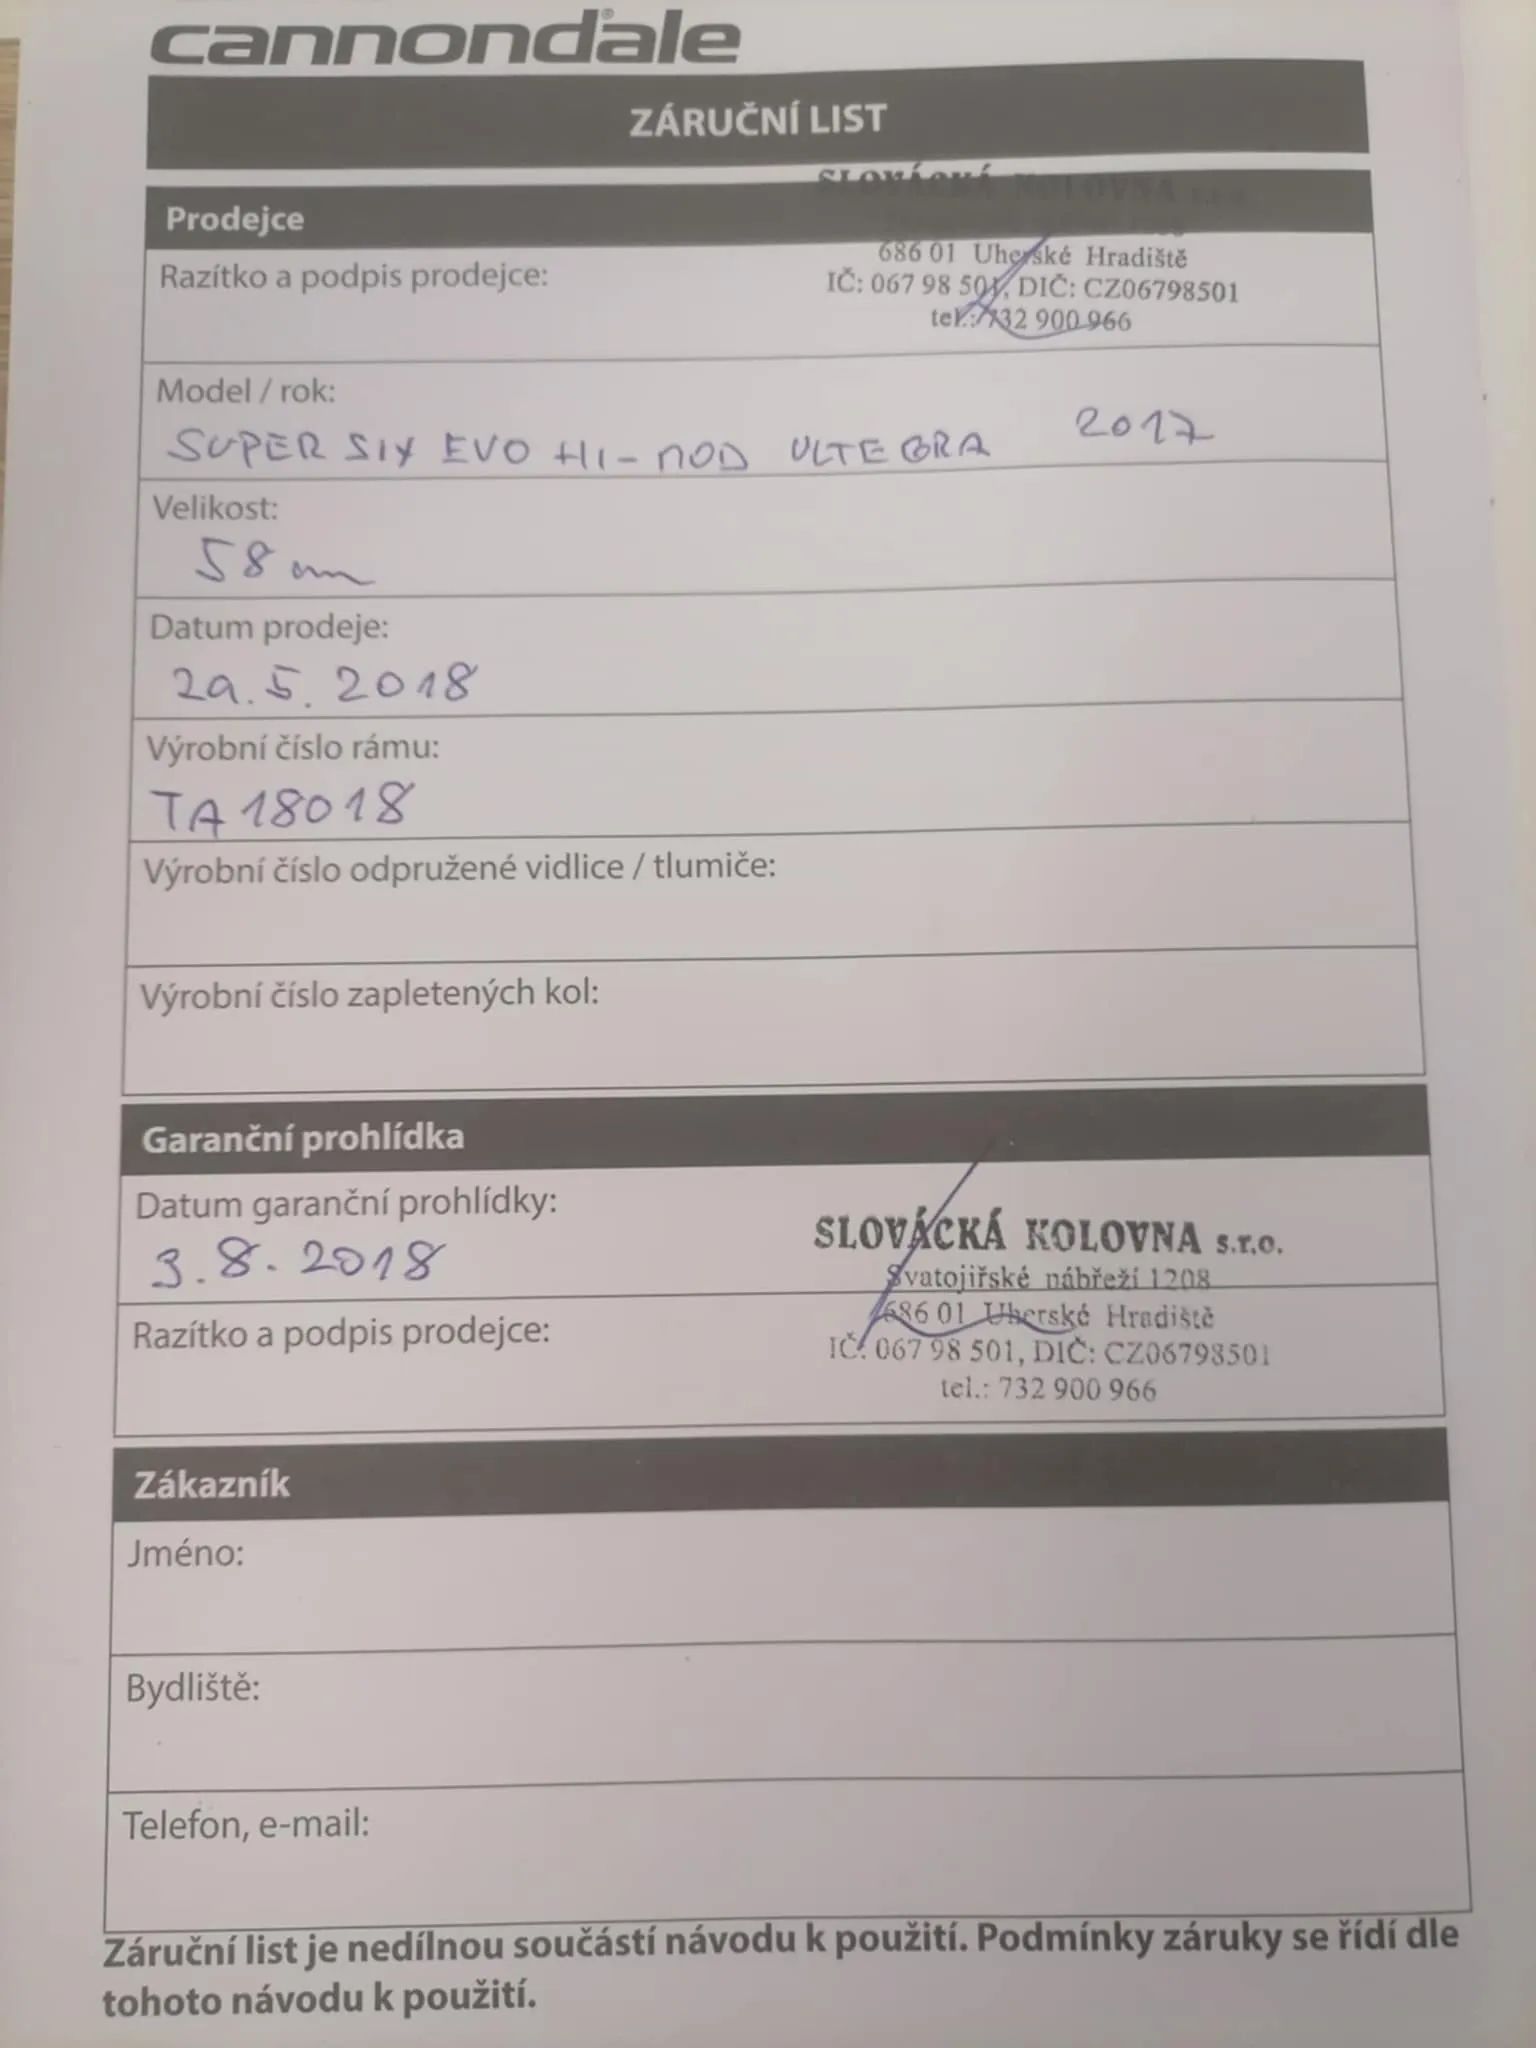 cannondale
ZÁRUČNÍ LIST
SLOVÁCKÁ KOLOVNA s.r.o.
Prodejce
Razítko a podpis prodejce:
686 01 Uherské Hradiště
IČ: 067 98 501, DIČ: CZ06798501
tel.: 732 900 966
Model / rok:
SUPER SIX EVO HI-MOD ULTEGRA 2017
Velikost:
58 cm
Datum prodeje:
29.5.2018
Výrobní číslo rámu:
TA18018
Výrobní číslo odpružené vidlice / tlumiče:
Výrobní číslo zapletených kol:
Garanční prohlídka
Datum garanční prohlídky:
3.8.2018
SLOVÁCKÁ KOLOVNA s.r.o.
Svatojiřské nábřeží 1208
686 01 Uherské Hradiště
Razítko a podpis prodejce:
IČ: 067 98 501, DIČ: CZ06798501
tel.: 732 900 966
Zákazník
Jméno:
Bydliště:
Telefon, e-mail:
Záruční list je nedílnou součástí návodu k použití. Podmínky záruky se řídí dle
tohoto návodu k použití.